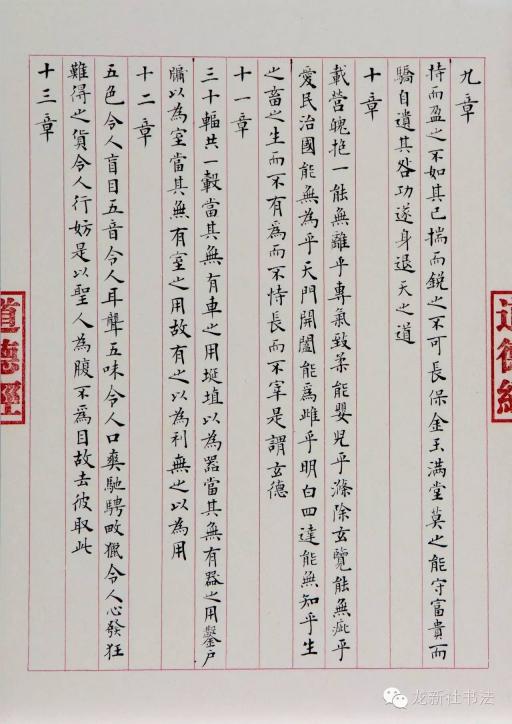 九章
持而盈之不如其已揣而銳之不可長保金玉滿堂莫之能守富貴而
驕自遺其咎功遂身退天之道
十章
載營魄抱一能無離乎專氣致柔能嬰兒乎滌除玄覽能無疵乎
愛民治國能無為乎天門開闔能爲雌乎明白四達能無知乎生
之畜之生而不有爲而不恃長而不宰是謂玄德
十一章
三十輻共一轂當其無有車之用埏埴以為器當其無有器之用鑿户
牖以為室當其無有室之用故有之以為利無之以為用
十二章
五色令人盲目五音令人耳聾五味令人口爽馳騁畋獵令人心發狂
難得之貨令人行妨是以聖人為腹不爲目故去彼取此
十三章
道德經
道德經
龙新社书法